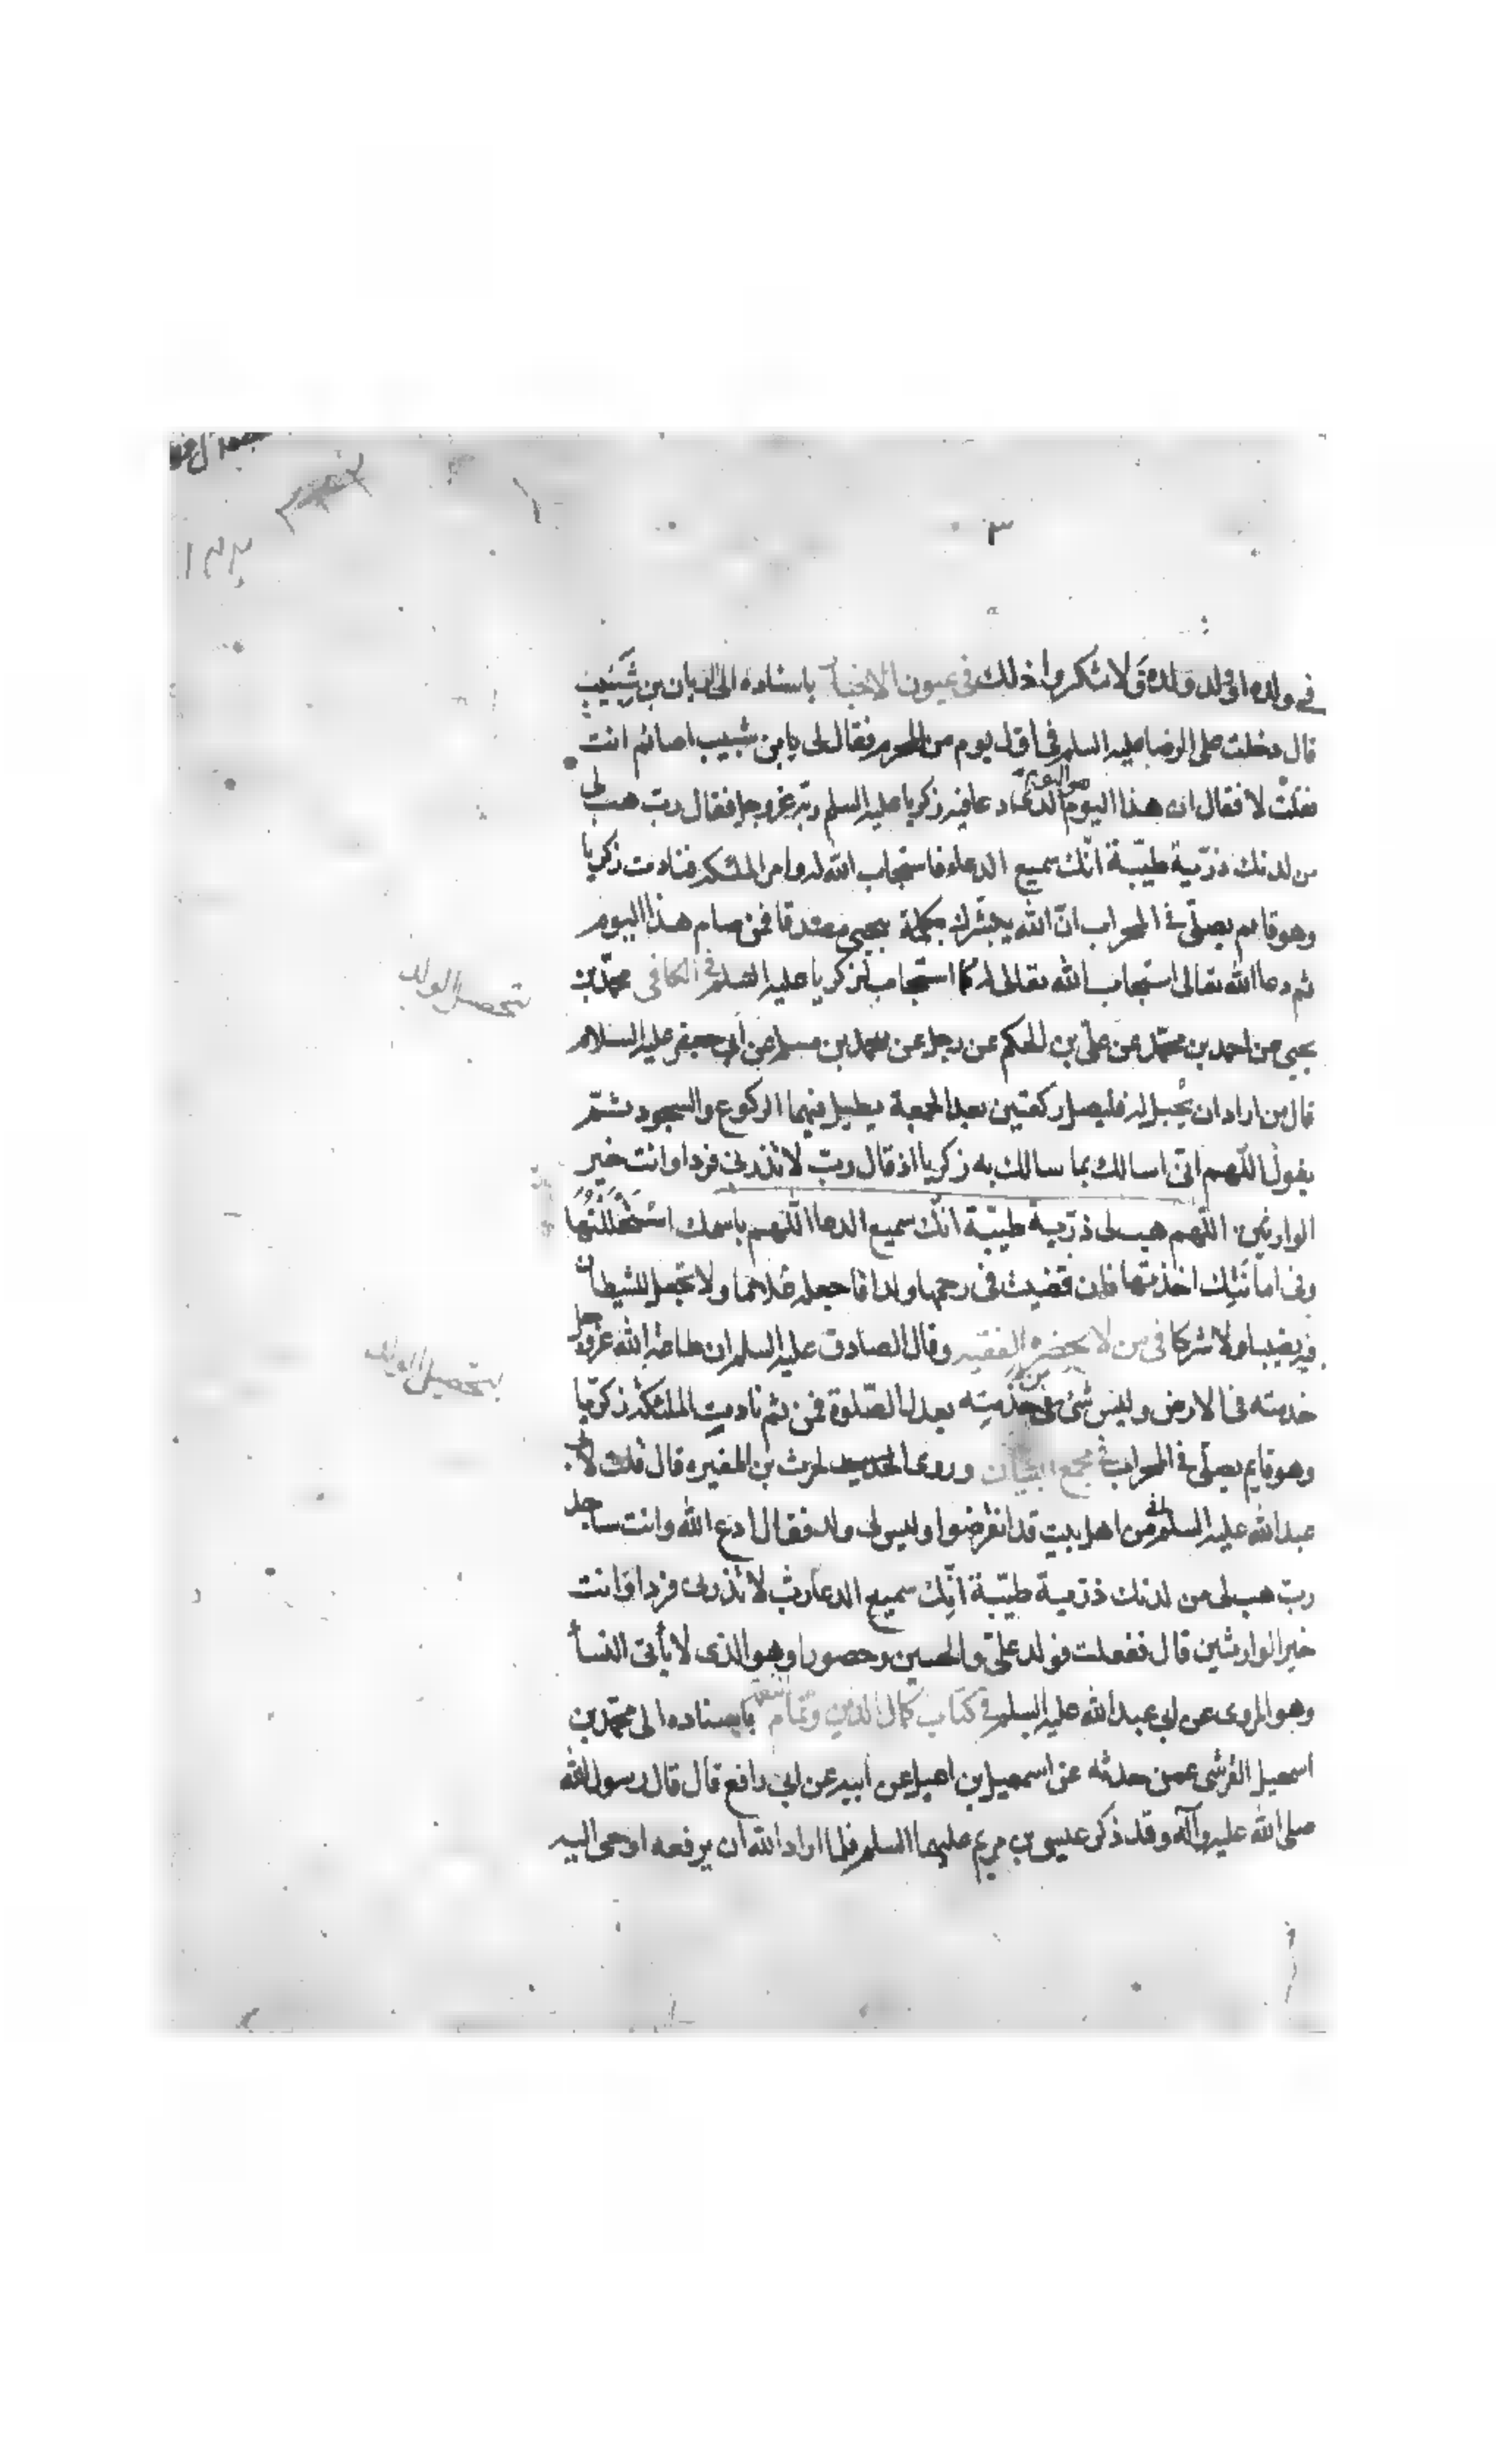 ٣
في ولده او ولد ولده فلا تنكروا ذلك في عيون الاخبار باسناده الى الريان بن شبيب
قال دخلت على الرضا عليه السلم في اول يوم من المحرم فقال لى يا بن شبيب اصائم انت
فقلت لا فقال ان هذا اليوم هو اليوم الذى دعا فيه زكريا عليه السلم ربه عزوجل فقال رب هب لى
من لدنك ذرّية طيّبة انّك سميع الدعاء فاستجاب الله له وامر الملئكة فنادت زكريا
وهو قايم يصلّى في المحراب انّ الله يبشّرك بكلمة بيحيى مصدقا فمن صام هذا اليوم
ثم دعا الله تعالى استجاب الله تعالى له كما استجاب لزكريا عليه السلم في الكافى محمّد بن
تحصيل الولد
يحيى عن احمد بن محمّد عن علىّ بن الحكم عن رجل عن محمد بن مسلم عن أبى جعفر عليه السلام
قال من اراد ان يُحبل له فليصل ركعتين بعد الجمعة يطيل فيهما الركوع والسجود ثمّ
يقول اللّهم انّى اسالك بما سالك به زكريا اذ قال ربّ لا تذرنى فردا وانت خير
الوارثين اللّهم هب لى ذرّية طيّبة انّك سميع الدعا اللّهم باسمك استحللتها
وفى امانتك اخذتها فان قضيت فى رحمها ولدا فاجعله غلاما ولا تجعل للشيطان
فيه نصيبا ولا شركا في من لا يحضره الفقيه وقال الصادق عليه السلم ان طاعة الله عزوجل
بتحصيل الولد
خدمته فى الارض وليس شئ من خدمته يعدل الصّلوة فمن ثم نادت الملئكة زكريا
وهو قايم يصلّى في المحراب في مجمع البيان وروى الحديث الحرث بن المغيره قال قلت لابى
عبد الله عليه السلم انى من اهل بيت قد انقرضوا وليس لى ولد فقال ادع الله وانت ساجد
ربّ هب لى من لدنك ذرّية طيّبة انّك سميع الدعا ربّ لا تذرنى فردا وانت
خير الوارثين قال ففعلت فولد علىّ والحسين وحصورا وهو الذى لا يأتى النسأ
وهو المروى عن ابى عبد الله عليه السلم في كتاب كمال الدين وتمام النعمة باسناده الى محمّد بن
اسمعيل القرشى عمن حدثه عن اسمعيل بن عن أبيه عن ابى رافع قال قال رسول الله
صلى الله عليه وآله وقد ذكر عيسى بن مريم عليهما السلم فلما اراد الله ان يرفعه اوحى اليه